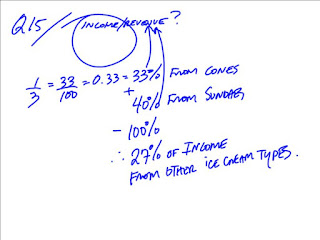 Q15/ INCOME/REVENUE?
1/3 = 33/100 = 0.33 = 33% FROM CONES
+
40% FROM SUNDAES
- 100%
∴ 27% OF INCOME
FROM OTHER ICE CREAM TYPES.